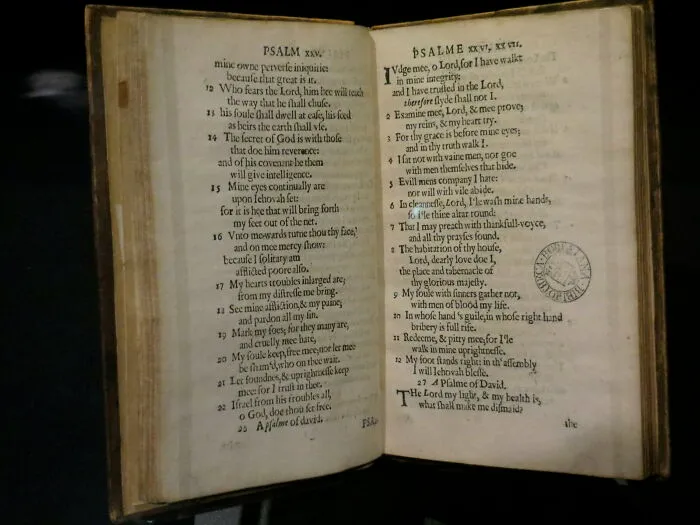 PSALM XXV.
mine owne perverse iniquitie:
because that great is it.
12 Who fears the Lord, him hee will teach
the way that he ſhall chuse.
13 his ſoule ſhall dwell at eaſe, his ſeed
as heirs the earth ſhall vſe.
14 The ſecret of God is with thoſe
that doe him reverence:
and of his covenant he them
will give intelligence.
15 Mine eyes continually are
upon Iehovah ſet:
for it is hee that will bring forth
my feet out of the net.
16 Vnto me-wards turne thou thy face,
and on mee mercy ſhow:
becauſe I ſolitary am
afflicted poore alſo.
17 My hearts troubles inlarged are;
from my diſtreſſe me bring.
18 See mine affliction, & my paine;
and pardon all my ſin.
19 Mark my foes; for they many are,
and cruelly mee hate,
20 My ſoule keep, free mee; nor let mee
be ſham'd, who on thee wait.
21 Let ſoundnes, & uprightneſſe keep
mee: for I truſt in thee.
22 Iſrael from his troubles all,
o God, doe thou ſet free.
A pſalme of david.
PSAL
PSALME XXVI, XXVII.
IVdge mee, o Lord, for I have walkt
in mine integrity:
and I have truſted in the Lord,
therefore ſlyde ſhall not I.
2 Examine mee, Lord, & mee prove;
my reins, & my heart try.
3 For thy grace is before mine eyes;
and in thy truth walk I.
4 I ſat not with vaine men, nor goe
with men themſelves that hide.
5 Evill mens company I hate:
nor will with vile abide.
6 In cleanneſſe, Lord, I'le waſh mine hands,
ſo I'le thine altar round:
7 That I may preach with thankfull-voyce,
and all thy prayſes ſound.
8 The habitation of thy houſe,
Lord, dearly love doe I,
the place and tabernacle of
thy glorious majeſty.
9 My ſoule with ſinners gather not,
with men of blood my life.
10 In whoſe hand's guile, in whoſe right hand
bribery is full rife.
11 Redeeme, & pitty mee; for I'le
walk in mine uprightneſſe.
12 My foot ſtands right: in th' aſſembly
I will Iehovah bleſſe.
27 A Pſalme of David.
THe Lord my light, & my health is,
what ſhall make me diſmaid?
the